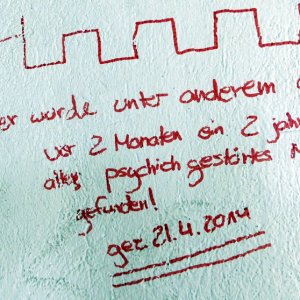 er wurde unter anderem
vor 2 Monaten ein 2 jahr
altes psychich gestörtes
gefunden!
gez 21.4.2014